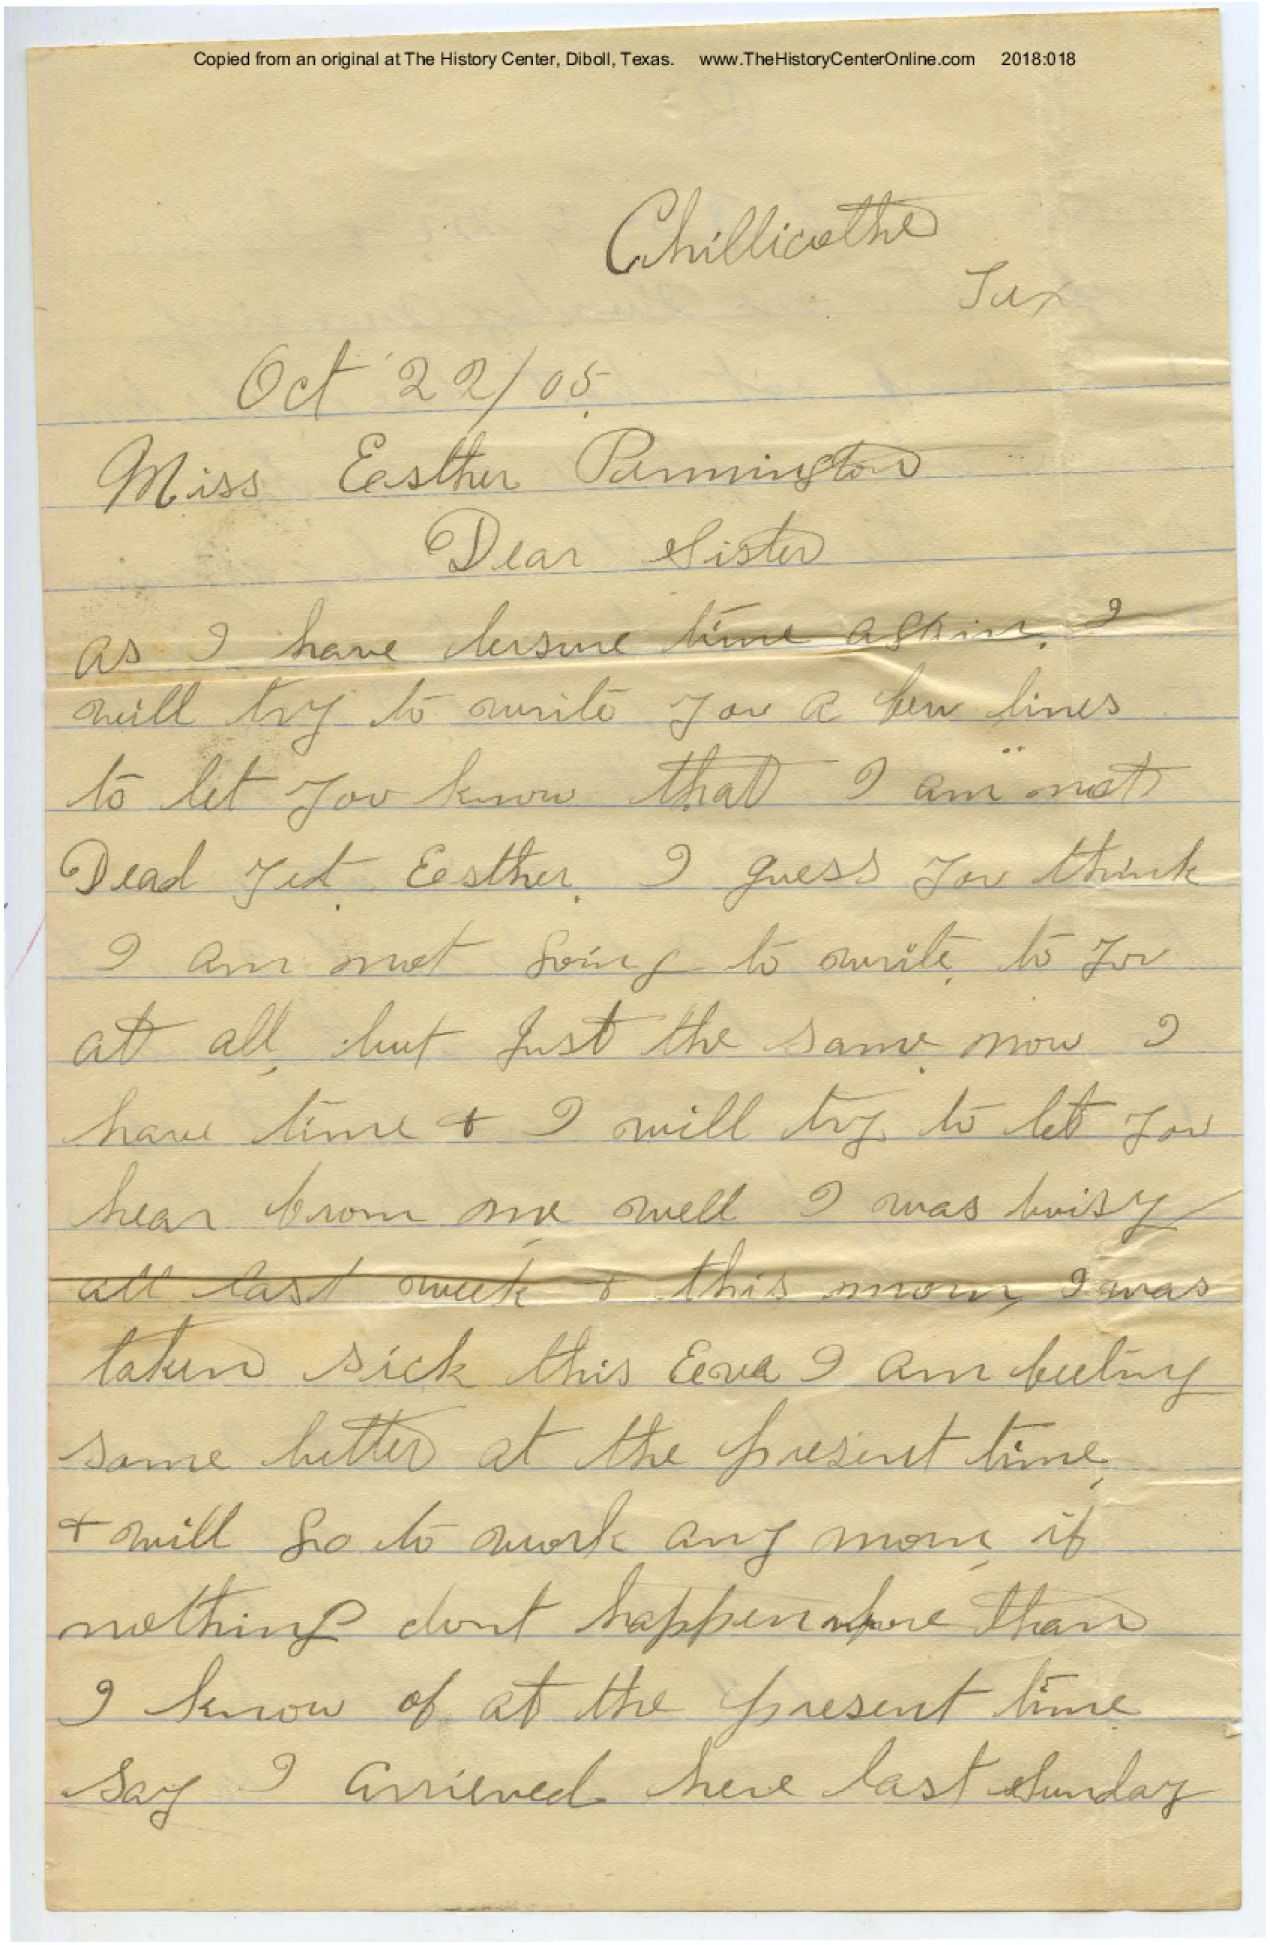 Copied from an original at The History Center, Diboll, Texas. www.TheHistoryCenterOnline.com 2018:018
Chillicothe
Tex
Oct 22/05.
Miss Eesther Pennington
Dear Sister
as I have leisure time again. I
will try to write you a few lines
to let you know that I am not
Dead yet. Eesther. I guess you think
I am not going to write, to you
at all, but Just the same, now I
have time + I will try to let you
hear from me, well I was buisy
all last week + this morn, I was
taken sick this Eeva I am feeling
some better at the present time,
+ will go to work any morn, if
nothing dont happen more than
I know of at the present time.
say I arrieved here last Sunday